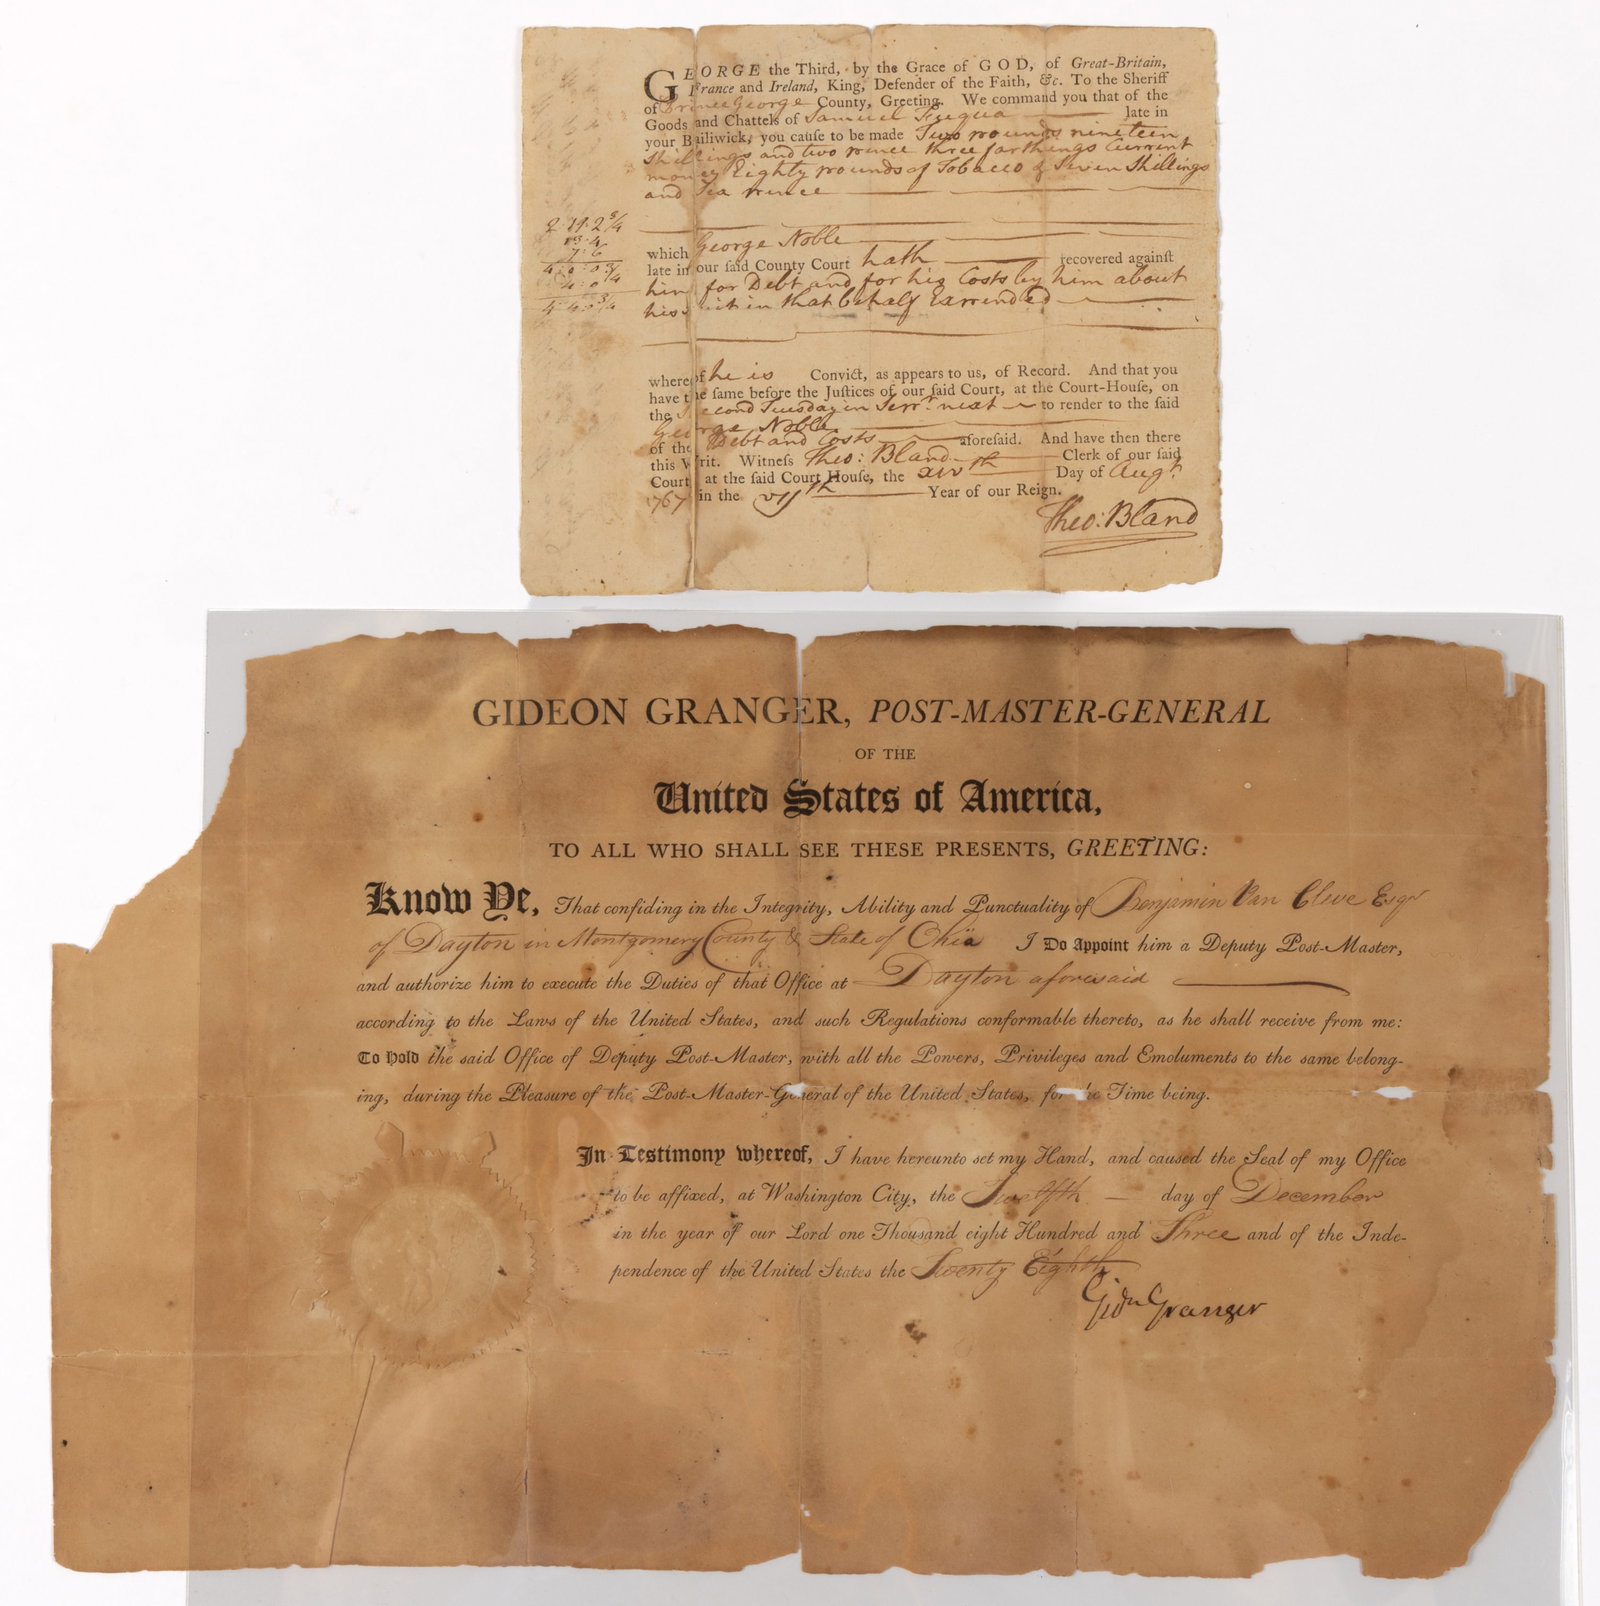 GEORGE the Third, by the Grace of GOD, of Great-Britain,
France and Ireland, King, Defender of the Faith, &c. To the Sheriff
of Prince George County, Greeting. We command you that of the
Goods and Chattels of Samuel Fuqua late in
your Bailiwick, you cause to be made Two pounds nineteen
shillings and two pence three farthings Current
money Eighty pounds of Tobacco & Seven Shillings
and pence
2 3/4
which George Noble
late in our said County Court hath recovered against
him for Debt and for his Costs by him about
his suit in that behalf Expended
whereof he is Convict, as appears to us, of Record. And that you
have the same before the Justices of our said Court, at the Court-House, on
the Second Tuesday in next to render to the said
George Noble
of the Debt and Costs aforesaid. And have then there
this Writ. Witness Theo: Bland Clerk of our said
Court at the said Court House, the xivth Day of Augt
1767 in the vijth Year of our Reign.
Theo: Bland
GIDEON GRANGER, POST-MASTER-GENERAL
OF THE
United States of America,
TO ALL WHO SHALL SEE THESE PRESENTS, GREETING:
Know Ye, That confiding in the Integrity, Ability and Punctuality of Benjamin Van Cleve Esqr
of Dayton in Montgomery County & State of Ohio I Do Appoint him a Deputy Post-Master,
and authorize him to execute the Duties of that Office at Dayton aforesaid
according to the Laws of the United States, and such Regulations conformable thereto, as he shall receive from me:
To Hold the said Office of Deputy Post-Master, with all the Powers, Privileges and Emoluments to the same belong-
ing, during the Pleasure of the Post-Master-General of the United States, for the Time being.
In Testimony whereof, I have hereunto set my Hand, and caused the Seal of my Office
to be affixed, at Washington City, the Twelfth day of December
in the year of our Lord one Thousand eight Hundred and Three and of the Inde-
pendence of the United States the Twenty Eighth
Gidn Granger